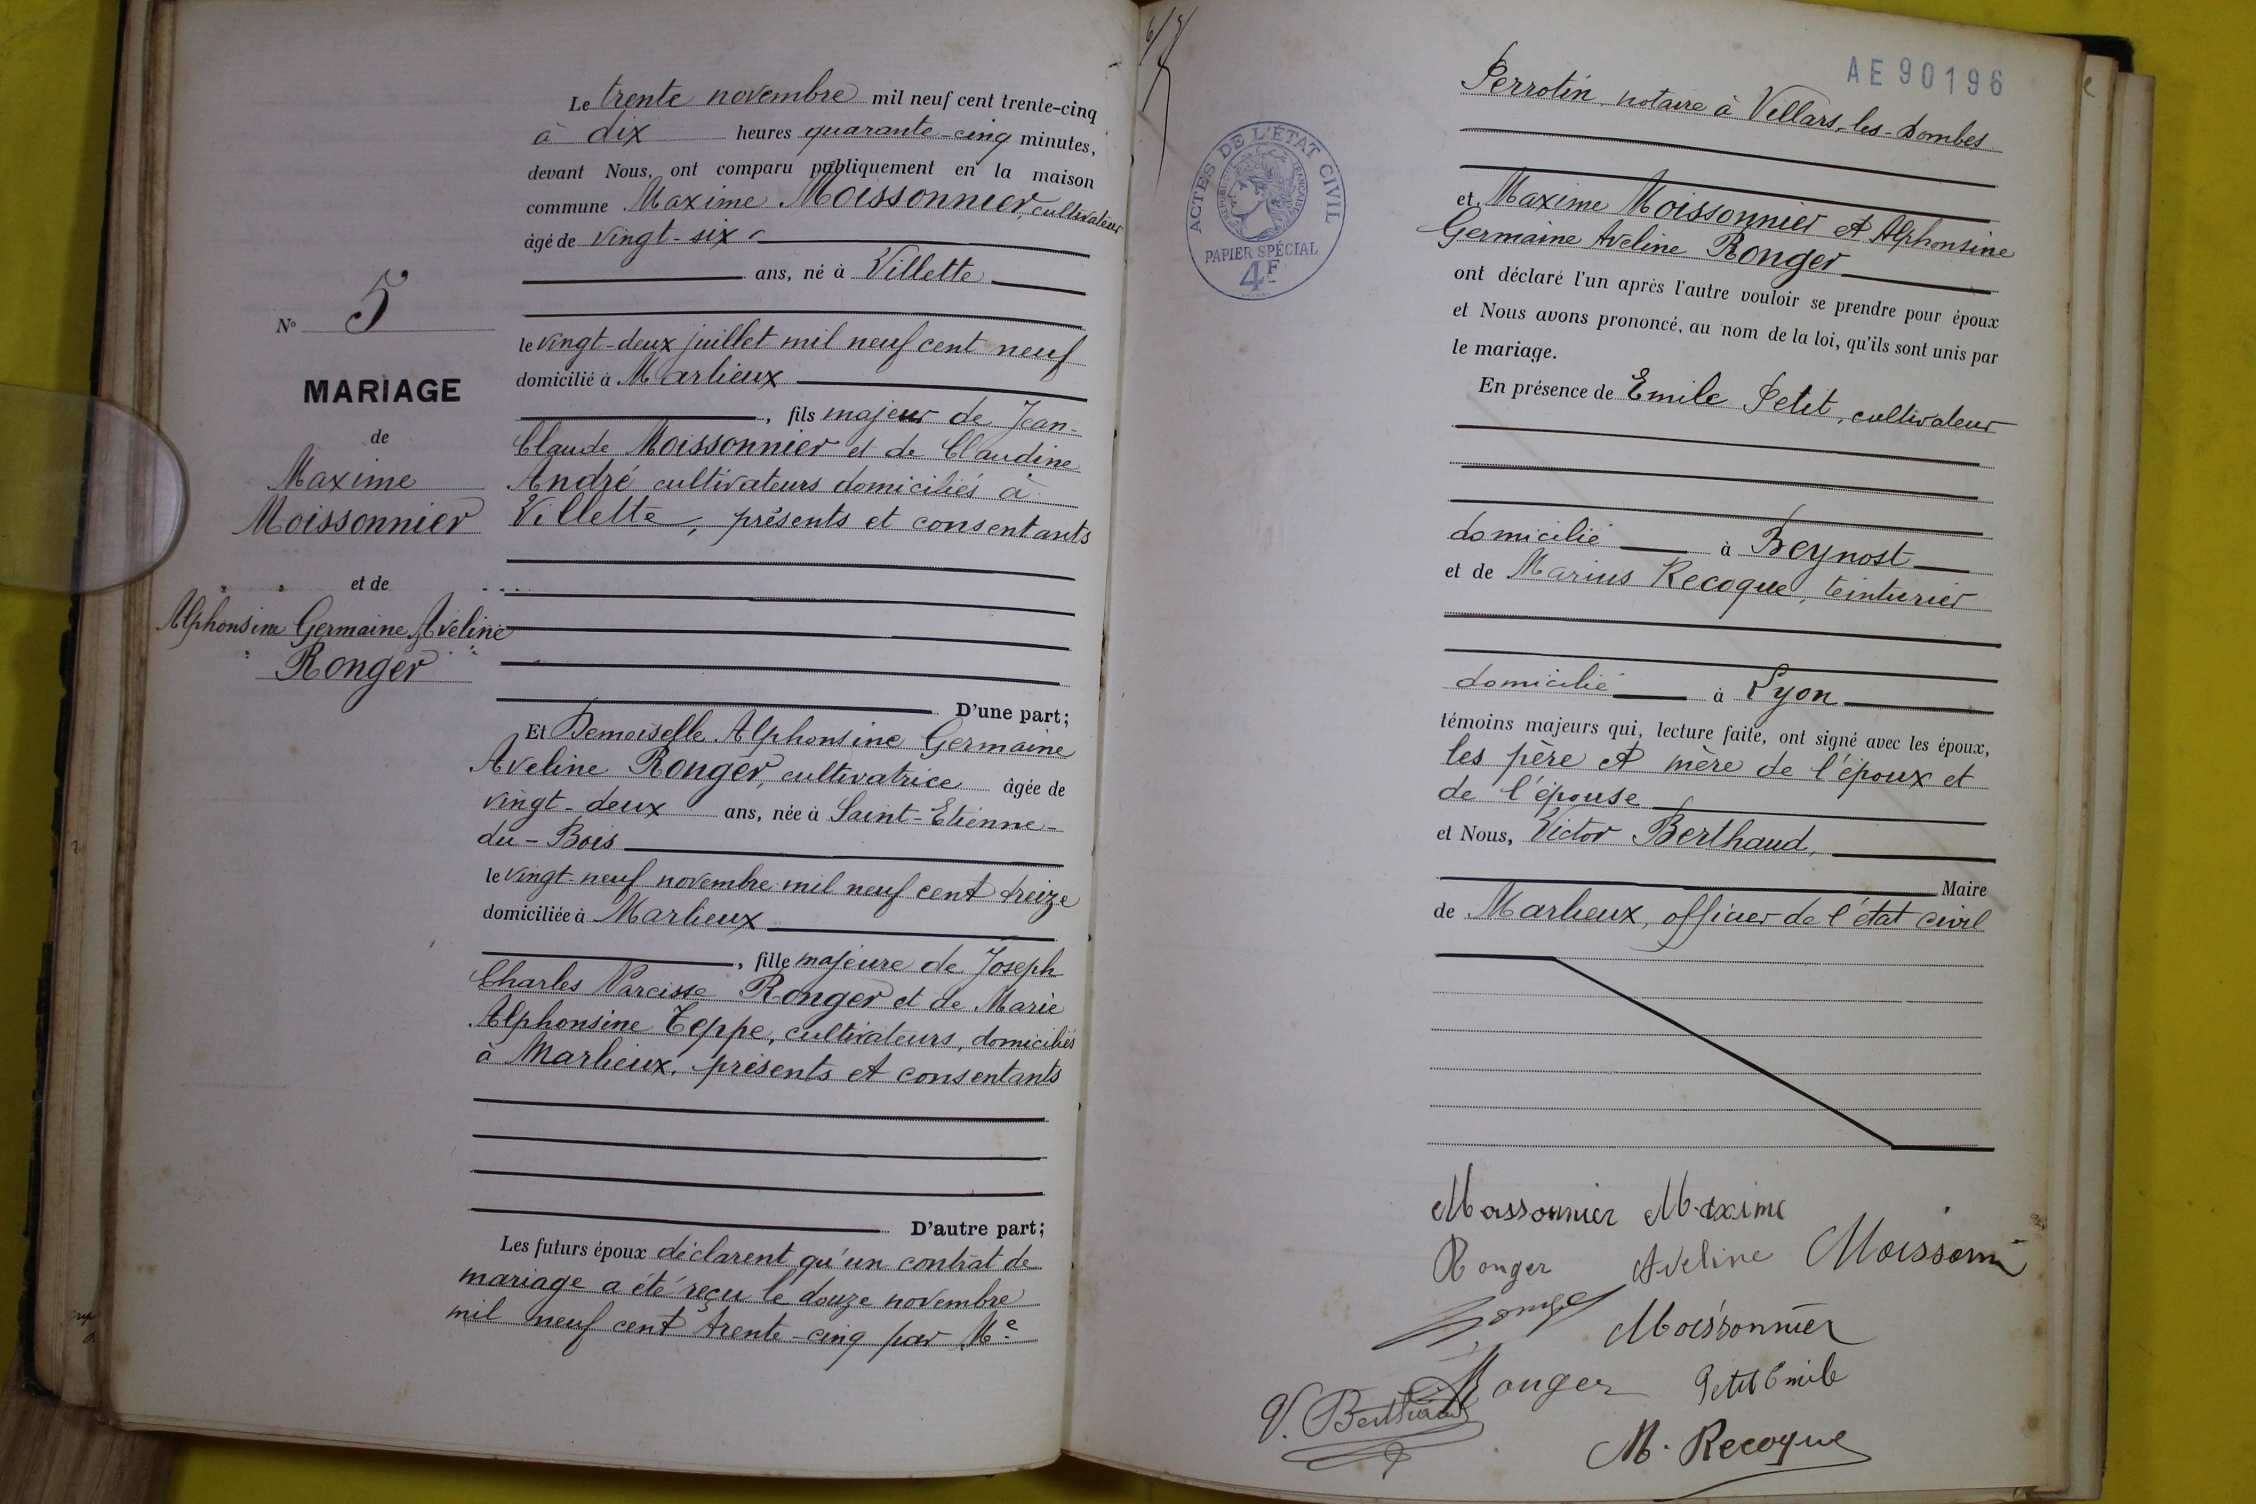 Le trente novembre mil neuf cent trente-cinq
à dix heures quarante-cinq minutes,
devant Nous, ont comparu publiquement en la maison
commune Maxime Moissonnier, cultivateur
âgé de vingt-six
ans, né à Villette
le vingt-deux juillet mil neuf cent neuf
domicilié à Marlieux
, fils majeur de Jean-
Claude Moissonnier et de Claudine
André cultivateurs domiciliés à
Villette, présents et consentants
D'une part;
Et Demoiselle Alphonsine Germaine
Aveline Ronger, cultivatrice âgée de
vingt-deux ans, née à Saint-Etienne-
du-Bois
le vingt-neuf novembre mil neuf cent treize
domiciliée à Marlieux
, fille majeure de Joseph
Charles Narcisse Ronger et de Marie
Alphonsine Teppe, cultivateurs, domiciliés
à Marlieux, présents et consentants
D'autre part;
Les futurs époux déclarent qu'un contrat de
mariage a été reçu le douze novembre
mil neuf cent trente-cinq par Me
N° 5
MARIAGE
de
Maxime
Moissonnier
et de
Alphonsine Germaine Aveline
Ronger
AE90196
ACTES DE L'ÉTAT CIVIL
RÉPUBLIQUE FRANÇAISE
PAPIER SPÉCIAL
4F
Perrotin notaire à Villars-les-Dombes
et Maxime Moissonnier et Alphonsine
Germaine Aveline Ronger
ont déclaré l'un après l'autre vouloir se prendre pour époux
et Nous avons prononcé, au nom de la loi, qu'ils sont unis par
le mariage.
En présence de Emile Petit, cultivateur
domicilié à Beynost
et de Marius Recoque, teinturier
domicilié à Lyon
témoins majeurs qui, lecture faite, ont signé avec les époux,
les père et mère de l'époux et
de l'épouse
et Nous, Victor Berthaud,
Maire
de Marlieux, officier de l'état civil
Moissonnier Maxime
Ronger Aveline Moissonni
Moissonnier
Ronger Petit Emile
V. Berthaud
M. Recoque